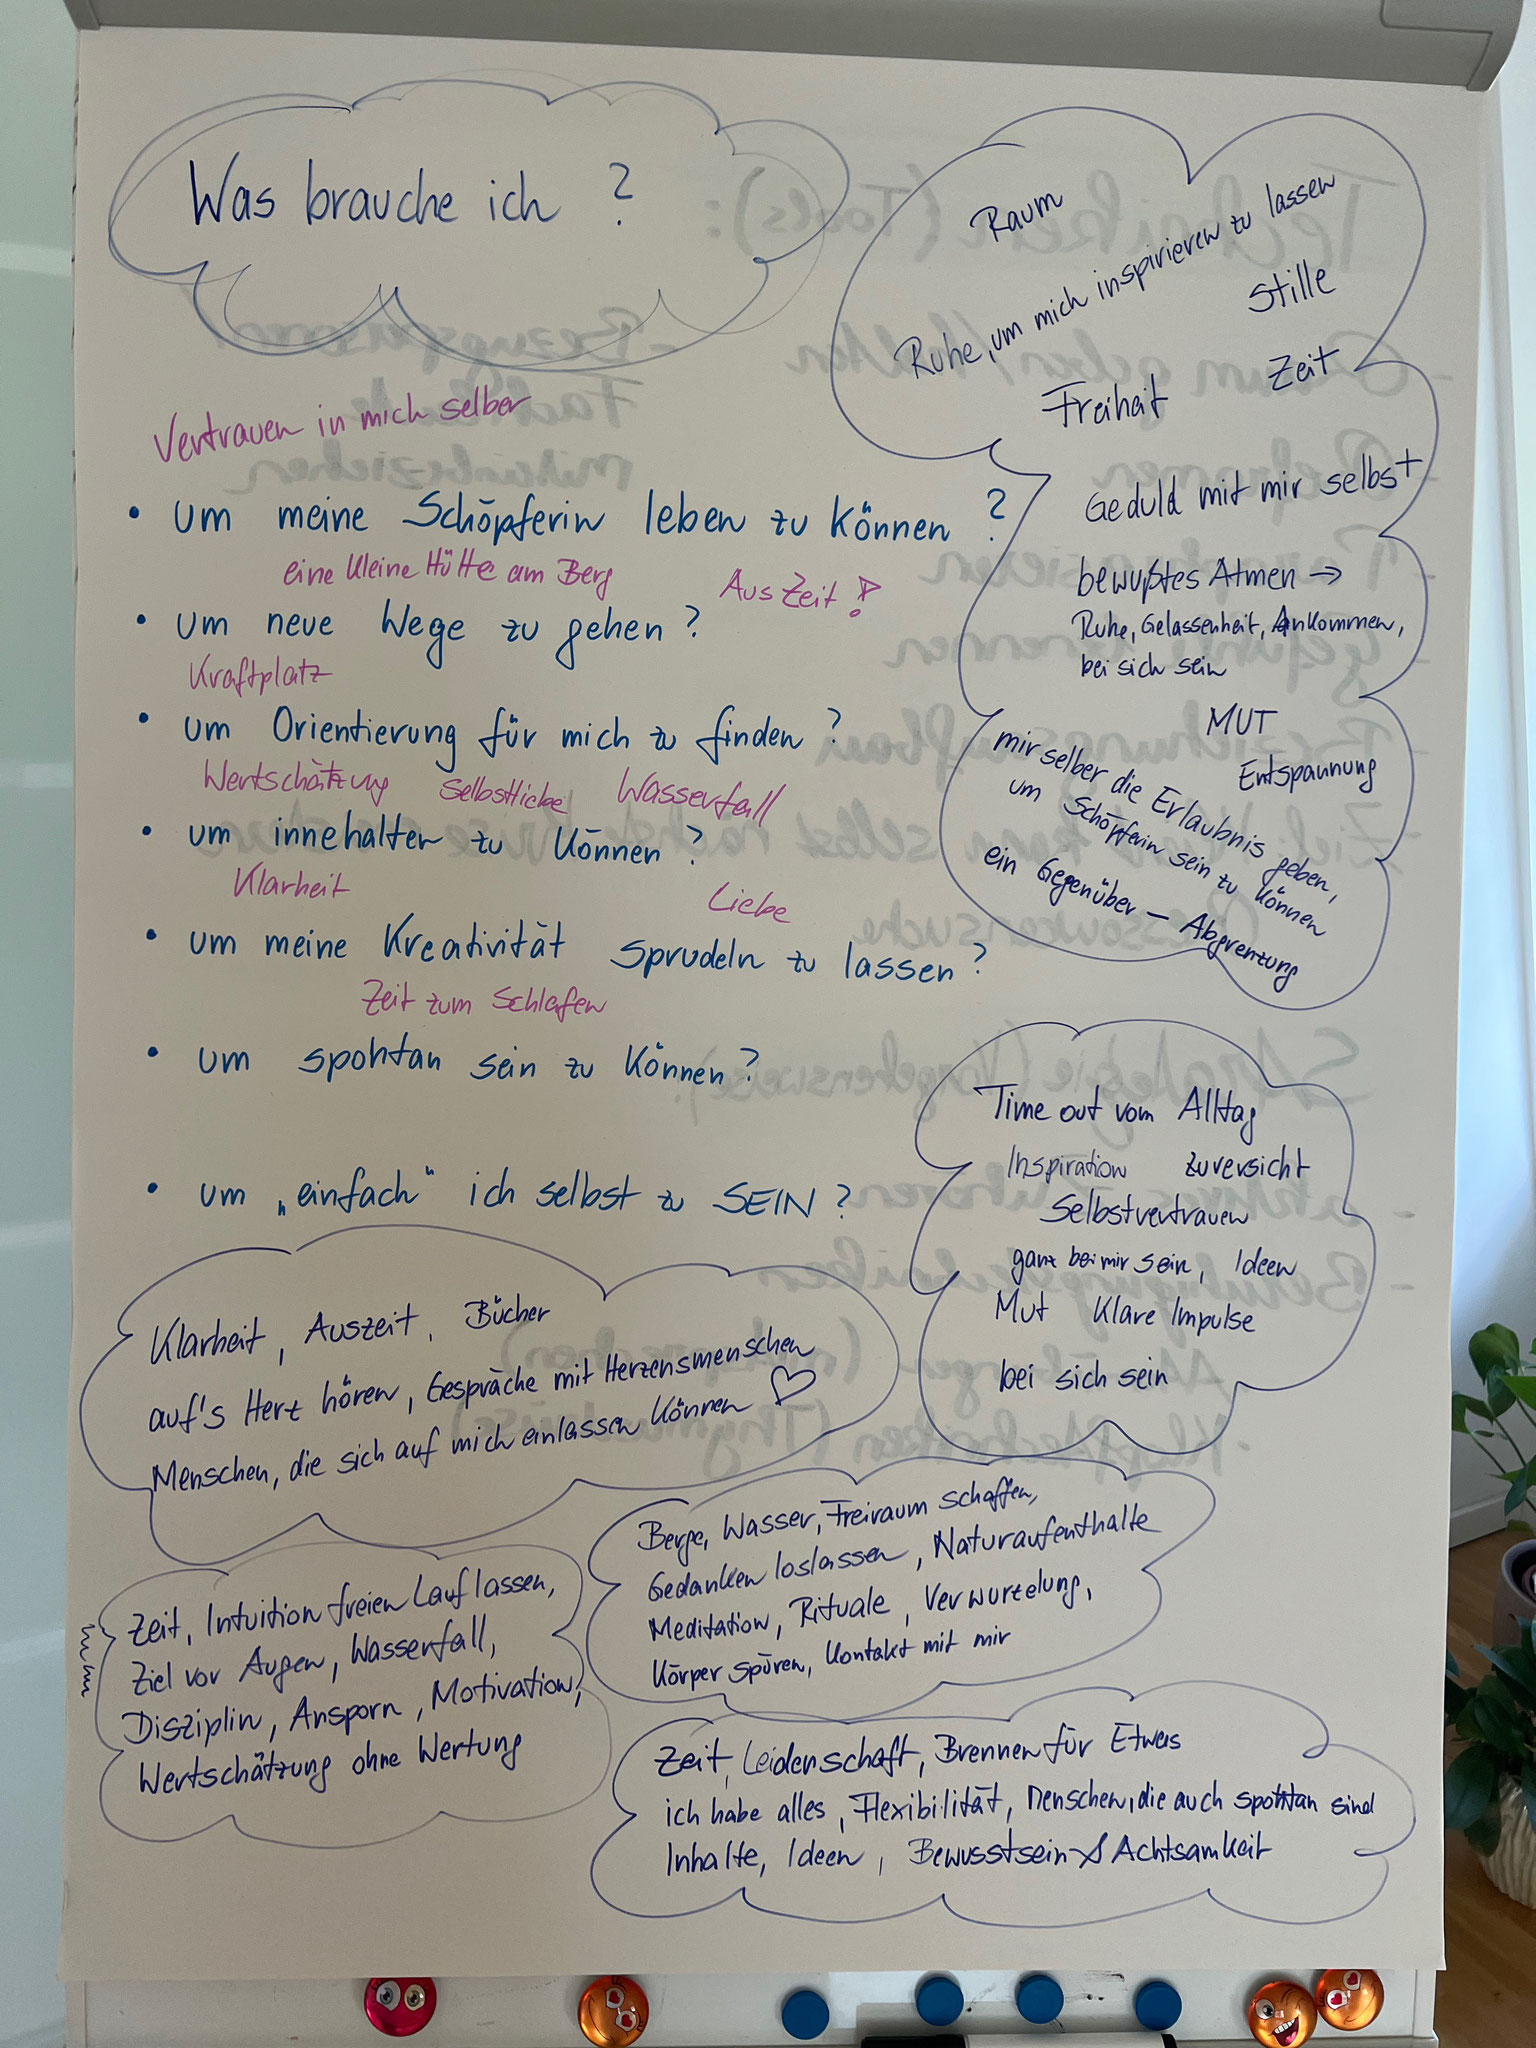 Was brauche ich ?
Vertrauen in mich selber
• um meine Schöpferin leben zu können ?
eine kleine Hütte am Berg
AusZeit !
• um neue Wege zu gehen ?
Kraftplatz
• um Orientierung für mich zu finden ?
Wertschätzung Selbstliebe Wasserfall
• um innehalten zu können ?
Klarheit Liebe
• um meine Kreativität sprudeln zu lassen ?
Zeit zum Schlafen
• um spontan sein zu können ?
• um „einfach" ich selbst zu SEIN ?
Raum
Ruhe, um mich inspirieren zu lassen
Stille
Zeit
Freiheit
Geduld mit mir selbst
bewußtes Atmen →
Ruhe, Gelassenheit, Ankommen,
bei sich sein
MUT
Entspannung
mir selber die Erlaubnis geben,
um Schöpferin sein zu können
ein Gegenüber – Abgrenzung
Time out vom Alltag
Inspiration Zuversicht
Selbstvertrauen
ganz bei mir sein, Ideen
Mut Klare Impulse
bei sich sein
Klarheit, Auszeit, Bücher
auf's Herz hören, Gespräche mit Herzensmenschen
Menschen, die sich auf mich einlassen können ♡
Berge, Wasser, Freiraum schaffen,
Gedanken loslassen, Naturaufenthalte
Meditation, Rituale, Verwurzelung,
Körper spüren, Kontakt mit mir
Zeit, Intuition freien Lauf lassen,
Ziel vor Augen, Wasserfall,
Disziplin, Ansporn, Motivation,
Wertschätzung ohne Wertung
Zeit, Leidenschaft, Brennen für Etwas
ich habe alles, Flexibilität, Menschen, die auch spontan sind
Inhalte, Ideen, Bewusstsein & Achtsamkeit